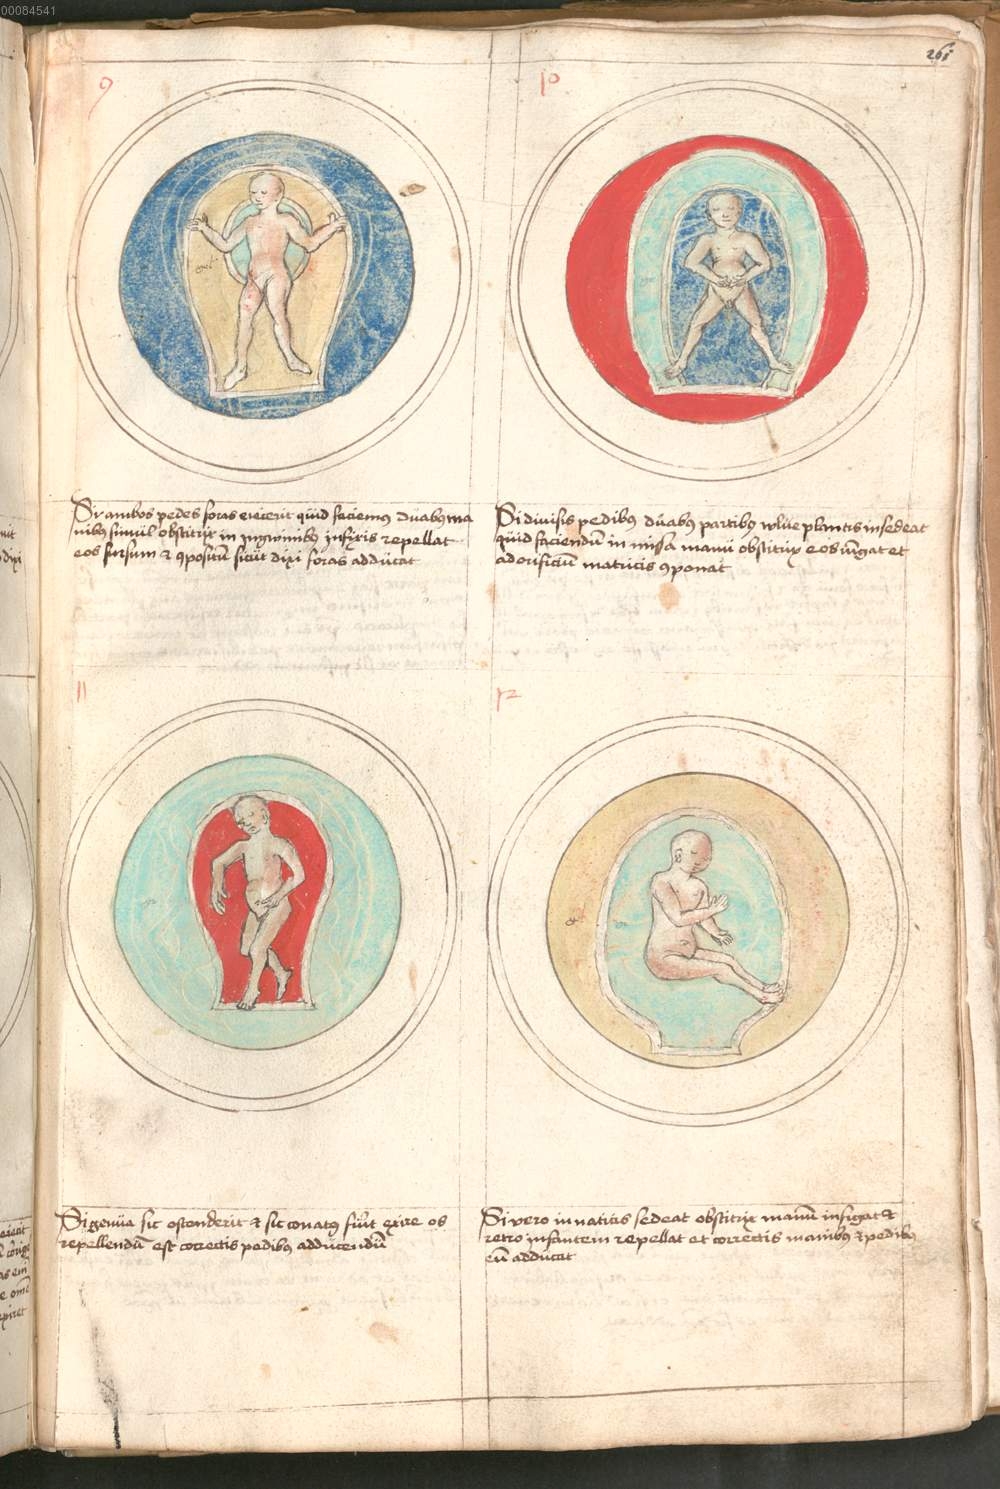 00084541
261
9
Si ambos pedes foras eiecerit quid faciemus duabus ma
nibus simul obstitrix in inguinibus infixis repellat
eos sursum et compositum sicut dixi foras adducat
10
Si divisis pedibus duabus partibus vulve plantis insedeat
quid faciendum in missa manu obstitrix eos iungat et
ad orificium matricis componat
11
Si genua sic ostenderit et sic conatus fuerit exire os
repellendum est correctis pedibus adducendum
12
Si vero in naticis sedeat obstitrix manum infigat et
retro infantem repellat et correctis manibus et pedibus
eum adducat